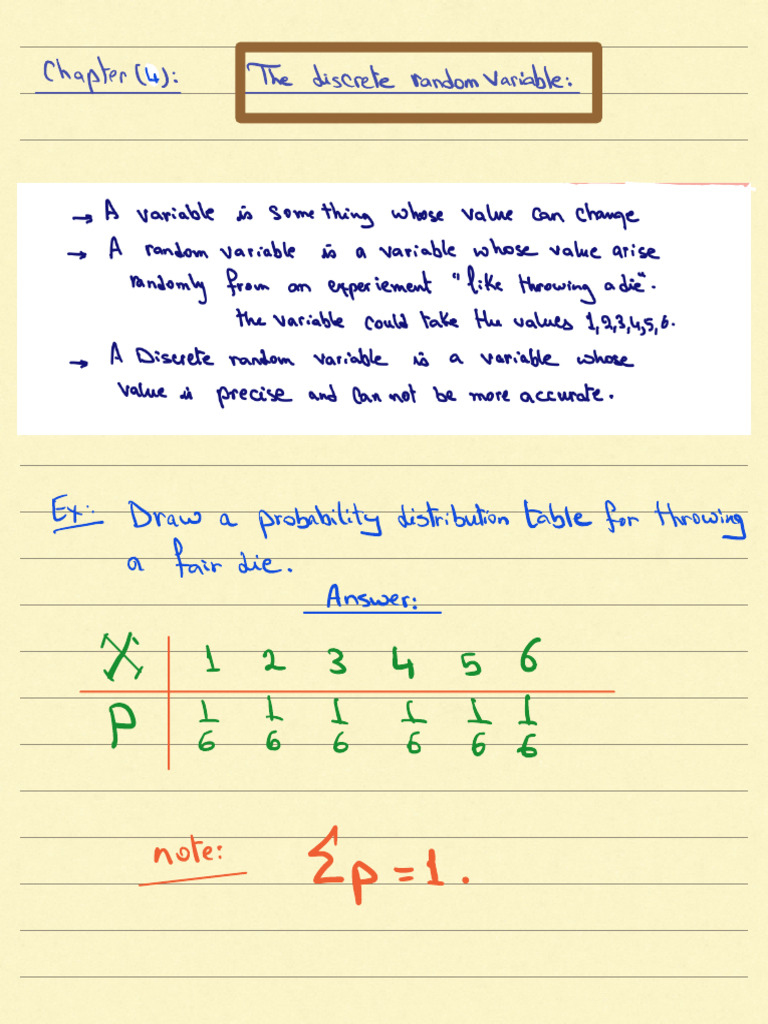 Chapter (4): The discrete random variable:
→ A variable is something whose value can change
→ A random variable is a variable whose value arise
randomly from an experiement "like throwing a die".
the variable could take the values 1,2,3,4,5,6.
→ A Discrete random variable is a variable whose
value is precise and can not be more accurate.
Ex: Draw a probability distribution table for throwing
a fair die.
Answer:
X 1 2 3 4 5 6
P 1/6 1/6 1/6 1/6 1/6 1/6
note: Σp = 1.